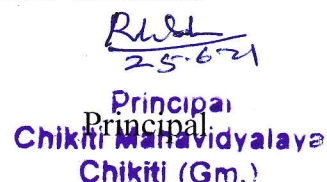 25-6-21
Principal
Principal
Chikiti Mahavidyalaya
Chikiti (Gm.)